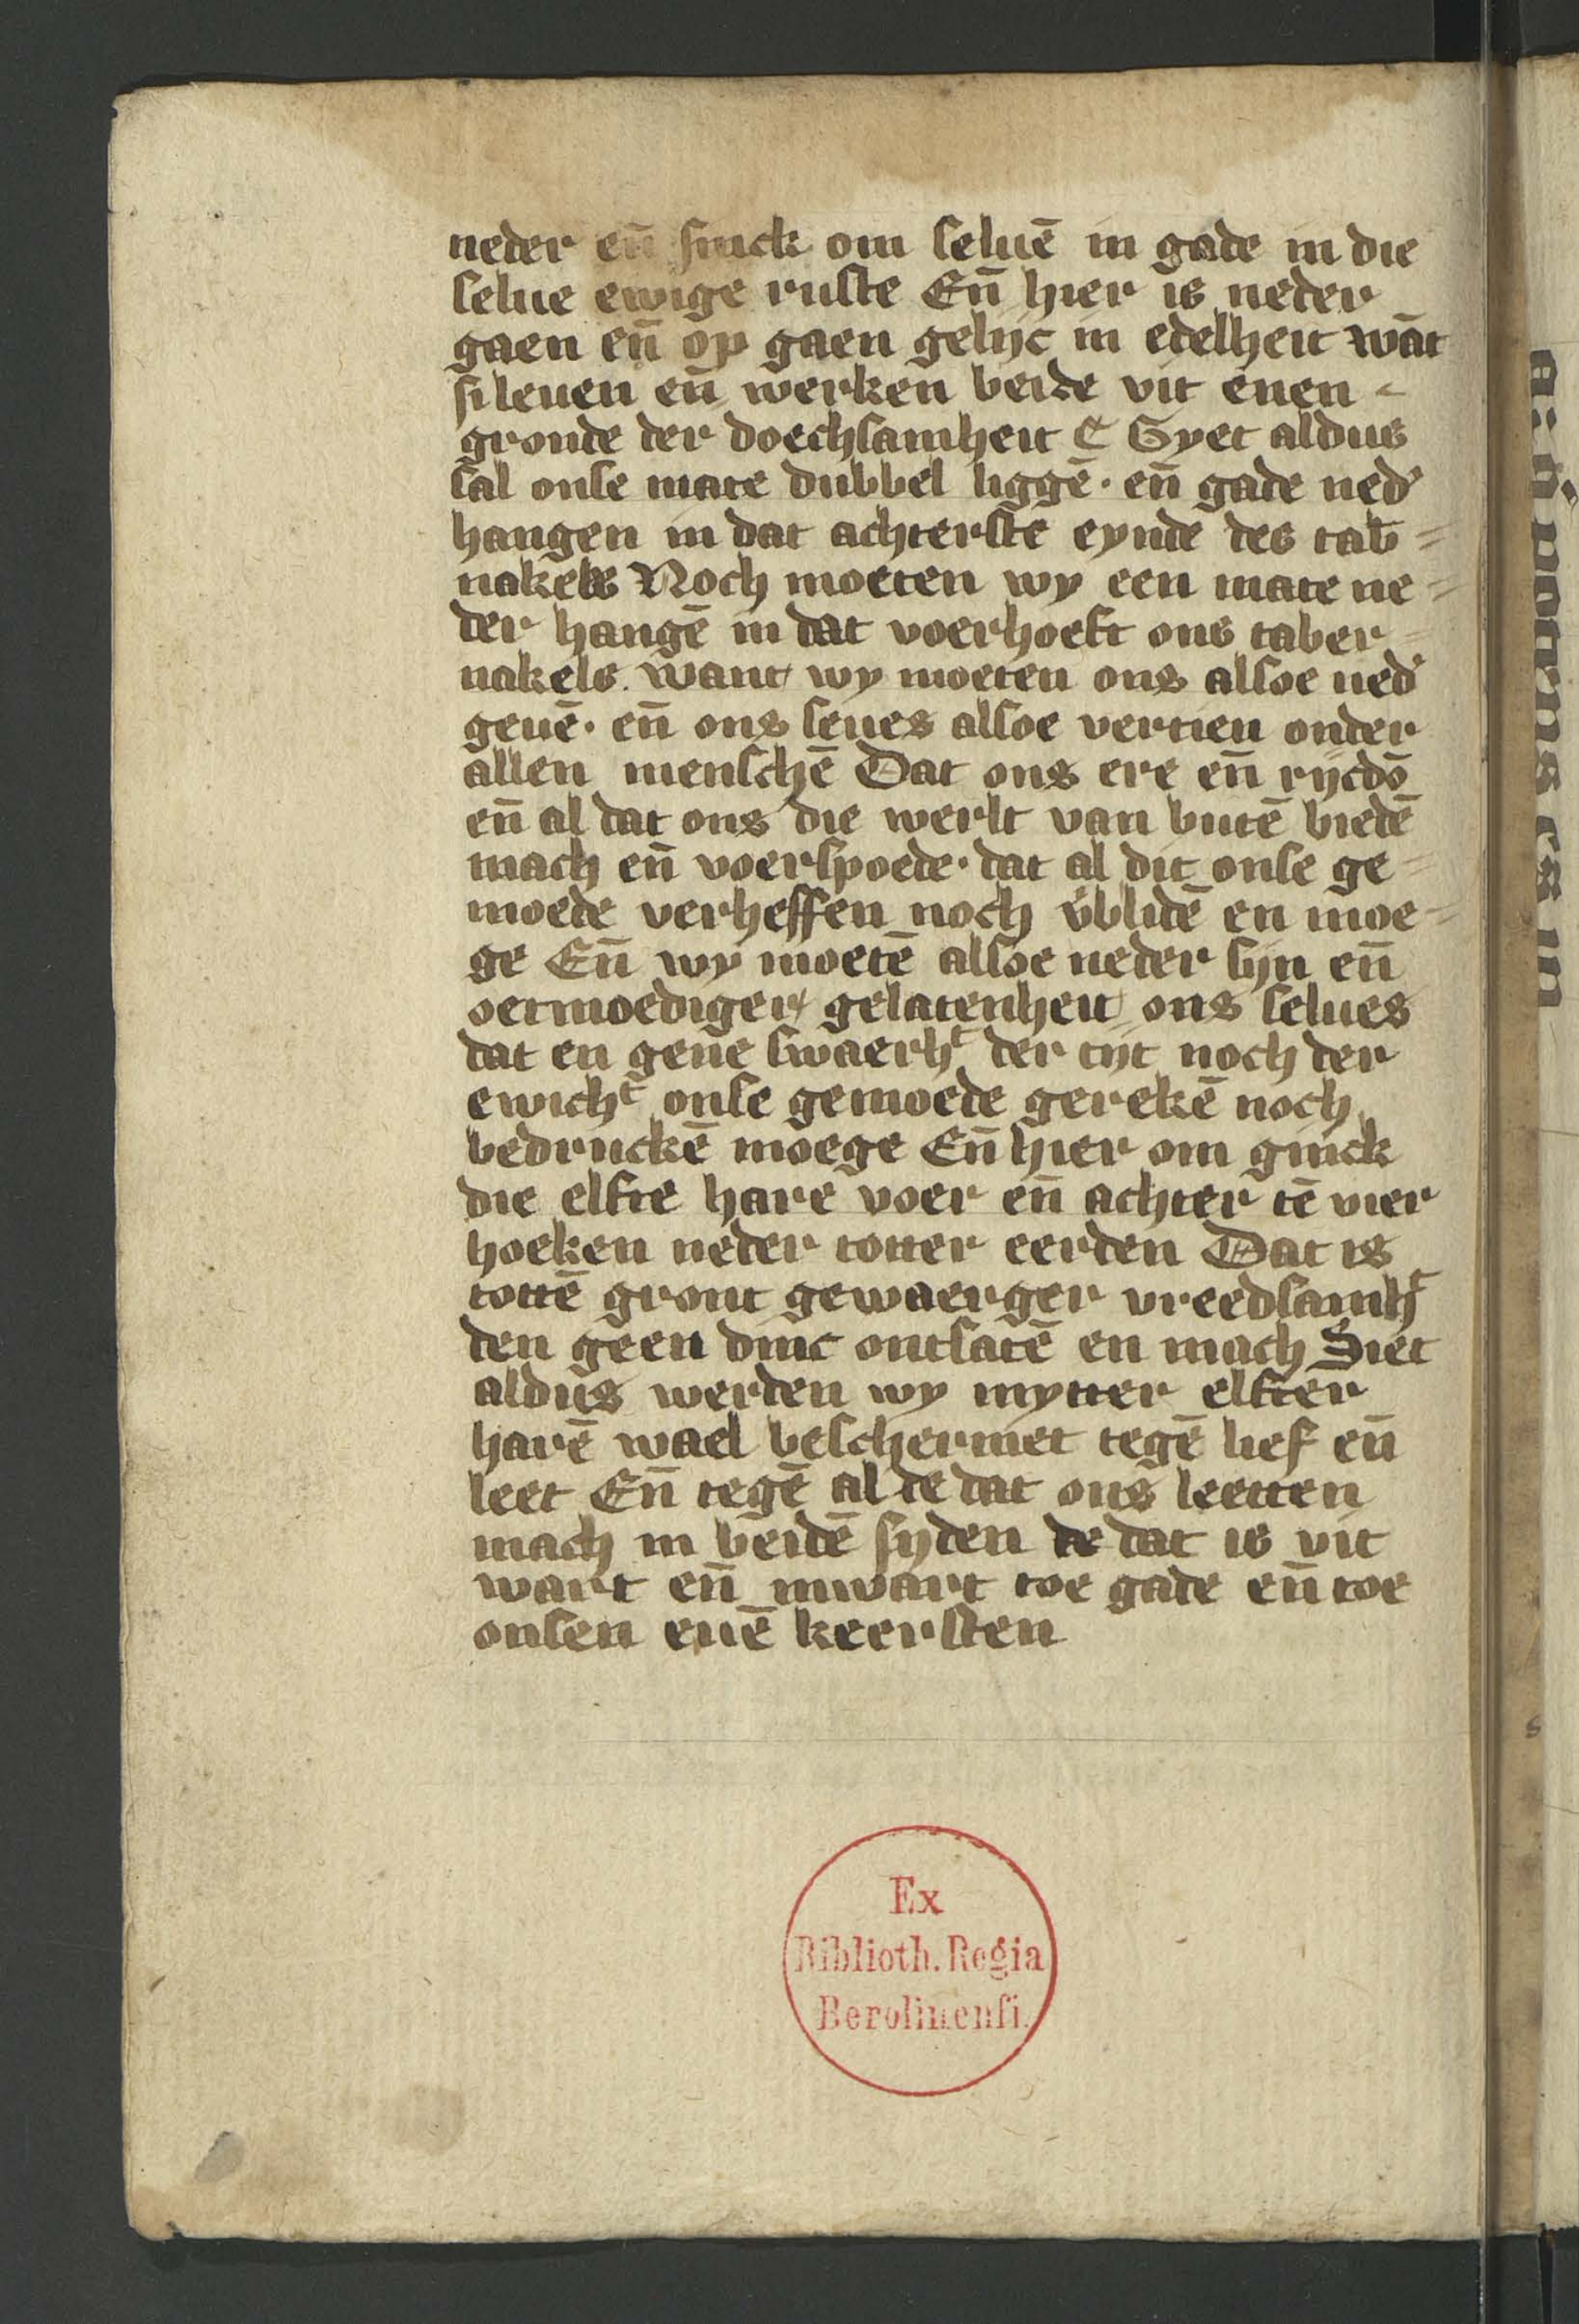 neder en̄ sinck om seluē in gade in die
selue ewige ruste En̄ hier is neder
gaen en̄ op gaen gelijc in edelheit wāt
si leuen en̄ werken beide vit enen
gronde der doechsamheit ⁋ Syet aldus
sal onse mate dubbel liggē· en̄ gade ned'
hangen in dat achterste eynde des tab̄=
nakels Noch moeten wy een mate ne=
der hangē in dat voerhoeft ons taber=
nakels. want wy moeten ons alsoe ned'
geuē· en̄ ons seues alsoe vertien onder
allen menschē Dat ons ere en̄ rijcdō
en̄ al dat ons die werlt van butē biedē
mach en̄ voerspoede· dat al dit onse ge=
moede verheffen noch v'blidē en moe=
ge En̄ wy moetē alsoe neder sijn en̄
oetmoediger gelatenheit ons selues
dat en gene swaerhᵗ der tijt noch der
ewichᵗ onse gemoede gerekē noch
bedruckē moege En̄ hier om ginck
die elfte harē voer en̄ achter tē vier
hoeken neder totter eerden Dat is
tottē gront gewaerger vreedsamhᵗ
den geen dinc ontsatē en mach Siet
aldus werden wy mytter elfter
harē wael beschermet tegē lief en̄
leet En̄ tegē al de dat ons leetten
mach in beidē syden de dat is vit
wart en̄ inwart toe gade en̄ toe
onsen euē keersten
Ex
Biblioth. Regia
Berolinenſi.